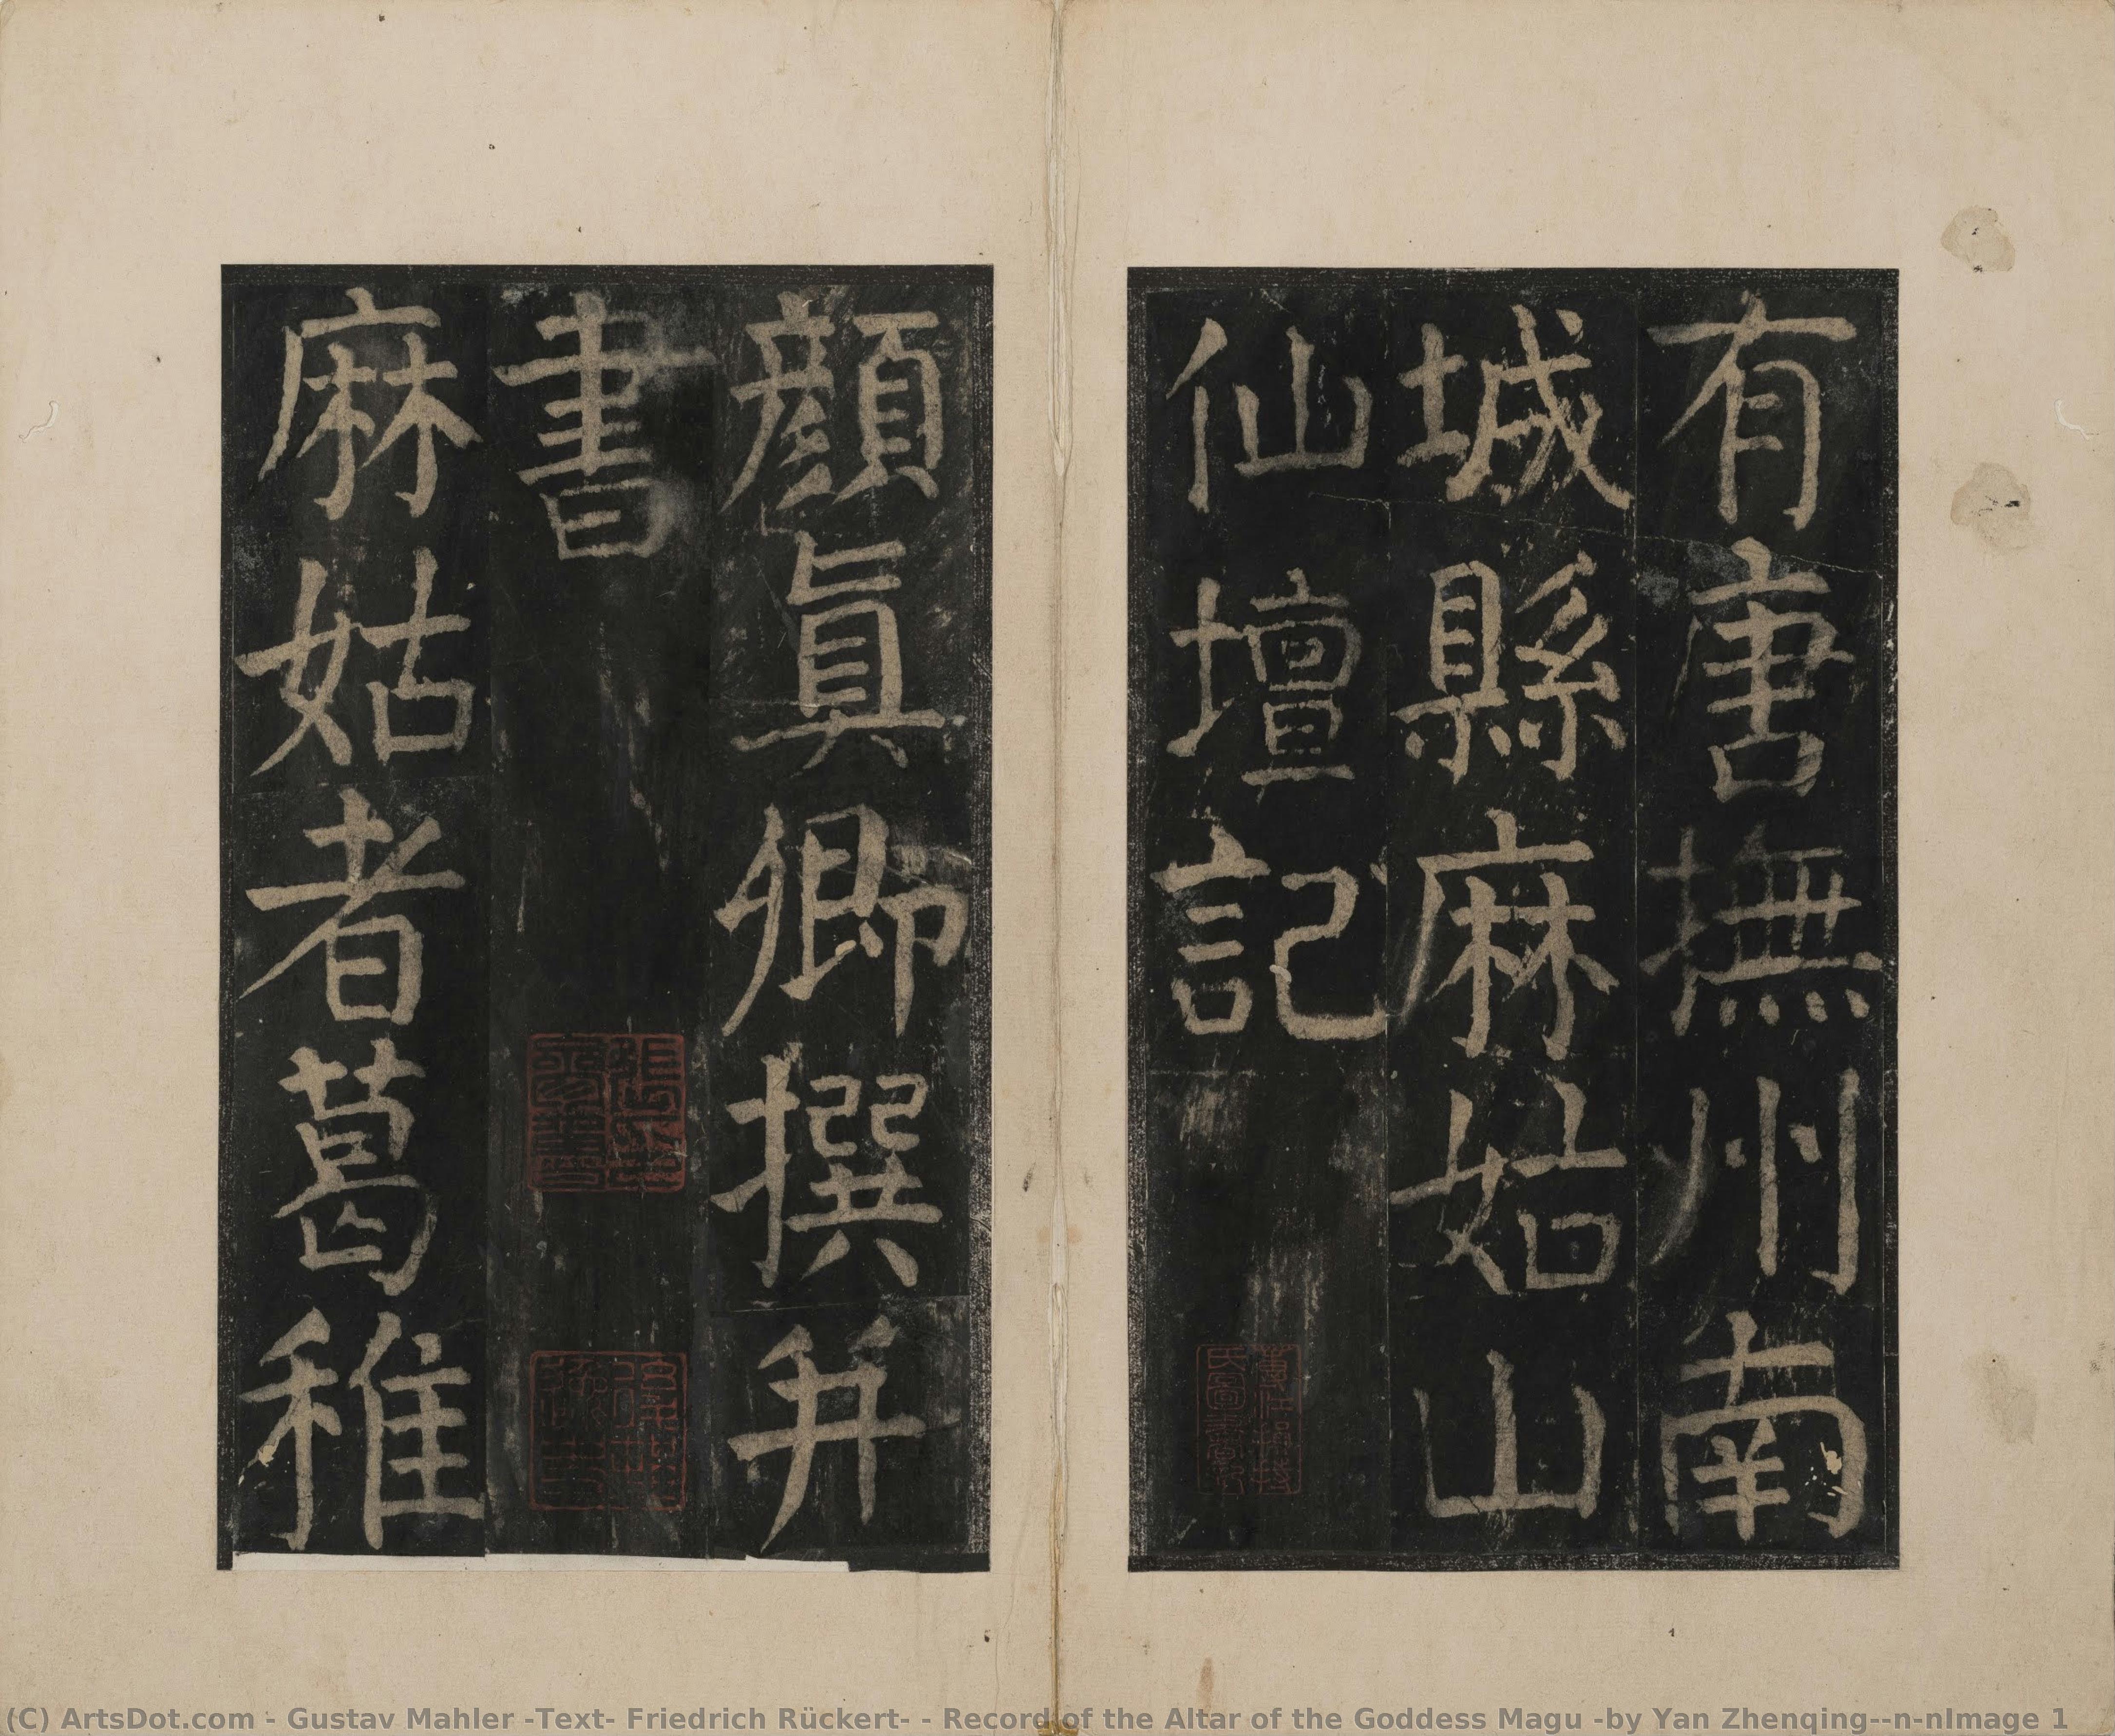 有唐撫州南
城縣麻姑山
仙壇記
顏眞卿撰并
書
麻姑者葛稚
(C) ArtsDot.com - Gustav Mahler -Text- Friedrich Rückert- - Record of the Altar of the Goddess Magu -by Yan Zhenqing--n-nImage 1